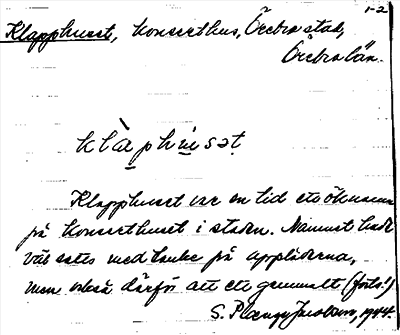 1-2
Klapphuset, konserthus, Örebro stad,
Örebro län.
klàphusət
Klapphuset var en tid ett öknamn
på konserthuset i staden. Namnet hade
väl satts med tanke på applåderna,
men också därför att ett gammalt (forts.!)
S. Plænge Jacobson, 1944.